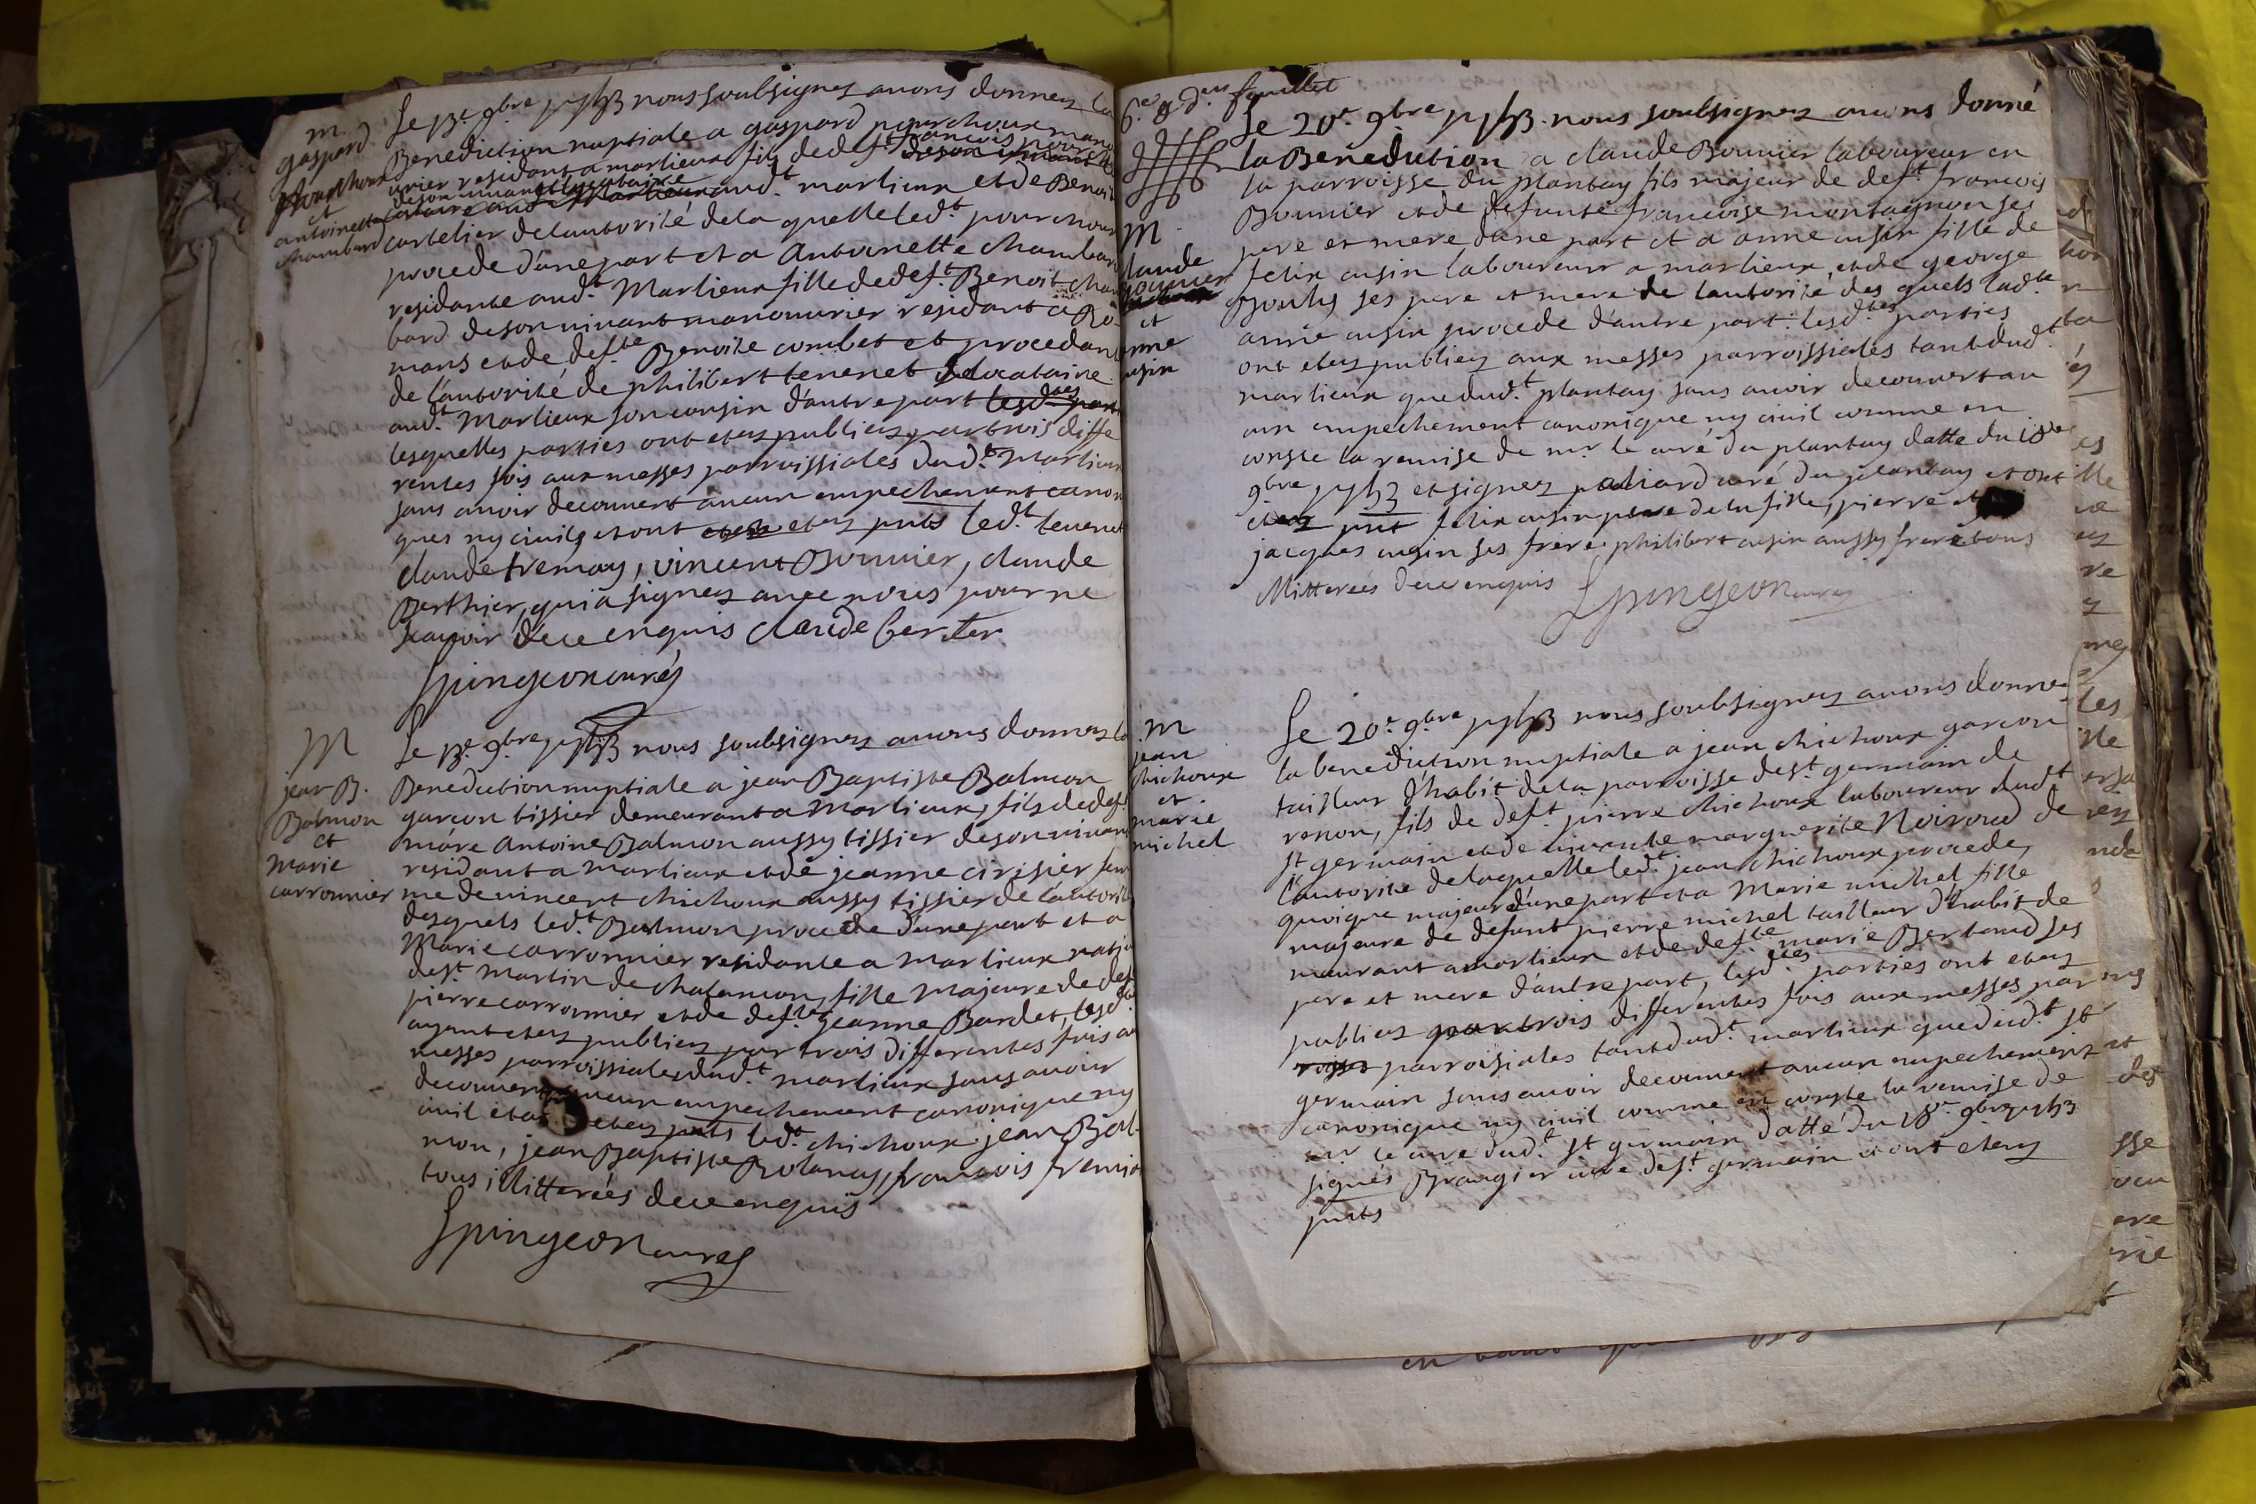 m
gaspard
pourchoux
et
antoinette
chambard
Le 13e. 9bre nous soubsignez avons donnez la
Benediction nuptiale a gaspard pourchoux mano
uvrier residant a marlieux fils de deft françois pourch
de son vivant
audt. marlieux et de Benoite
cartelier de l'autorité de la quelle ledt. pourchoux
procede d'une part et a Antoinette chambard
residante audt. Marlieux fille de deft. Benoit cham
bard de son vivant manouvrier residant a Ro
mans et de defte Benoite combet et procedant
de l'autorité de philibert tenenet locataire
audt. Marlieux son cousin d'autre part
lesquelles parties ont etez publiez par trois diffe
rentes fois aux messes parroissiales dudt. Marlieux
sans avoir decouvert aucun empechement canoni
ques ny civils et ont etez pnts ledt. tenenet
claude fremay, vincent Bouvier, claude
Berthier, qui a signez avec nous pour ne
scavoir de ce enquis claude berter
Spingeon curéz
M
jean B.
Balmon
et
Marie
carronnier
Le 13e. 9bre nous soubsignez avons donnez la
Benediction nuptiale a jean Baptiste Balmon
garcon tissier demeurant a Marlieux, fils de deft
Antoine Balmon aussy tissier de son vivant
residant a Marlieux et de jeanne cirisier fem
me de vincent chichoux aussy tissier de l'autorité
desquels ledt. Balmon procede d'une part et a
Marie carronnier residante a Marlieux native
de st. Martin de chalamon, fille Majeure de deft
pierre carronnier et de defte jeanne Bardet, lesd.
ayant etez publiez par trois differentes fois aux
messes parroissiales dudt. marlieux sans avoir
decouvert aucun empechement canonique ny
civil et ont etez pnts ledt. chichoux jean Bal
mon, jean Baptiste Bolanay, francois fremio
tous illitterées de ce enquis
Spingeon curéz
6e. & der. feuillet
M
claude
bouvier
et
anne
cusin
Le 20e. 9bre nous soubsignez avons donné
la Benediction a claude Bouvier laboureur en
la parroisse du plantay fils majeur de deft. francois
Bouvier et de defunte francoise montagnon ses
pere et mere d'une part et a anne cusin fille de
felix cusin laboureur a marlieux, et de george
Bouly ses pere et mere de l'autorité des quels ladte
anne cusin procede d'autre part. lesdtes parties
ont etez publiez aux messes parroissiales tant dudt
marlieux que dudt. plantay sans avoir decouvert au
cun empechement canonique ny civil comme en
conste la remise de mr. le curé du plantay datte du 18e
9bre et signez paliard curé du plantay et ont
etez pnt felix cusin pere de la fille, pierre et
jacques cusin ses frere philibert cusin aussy frere tous
illitterées de ce enquis Spingeon curéz
M
jean
chichoux
et
marie
michel
Le 20e. 9bre nous soubsignez avons donné
la benediction nuptiale a jean chichoux garcon
tailleur d'habit de la parroisse de st. germain de
renon, fils de deft. pierre chichoux laboureur dudt
st germain et de vivante marguerite Noiroud de
l'autorité de laquelle ledt. jean chichoux procede,
quoique majeur d'une part et a Marie michel fille
majeure de defunt pierre michel tailleur d'habit de
meurant a marlieux et de defte. marie Bertaud ses
pere et mere d'autre part, lesdtes parties ont etez
publiez par trois differentes fois aux messes par
parroissiales tant dudt. marlieux que dudt. st
germain sans avoir decouvert aucun empechement
canonique ny civil comme en conste la remise de
mr le curé dudt. st germain datté du 18e. 9bre
signés Brangier curé de st. germain et ont etez
pnts